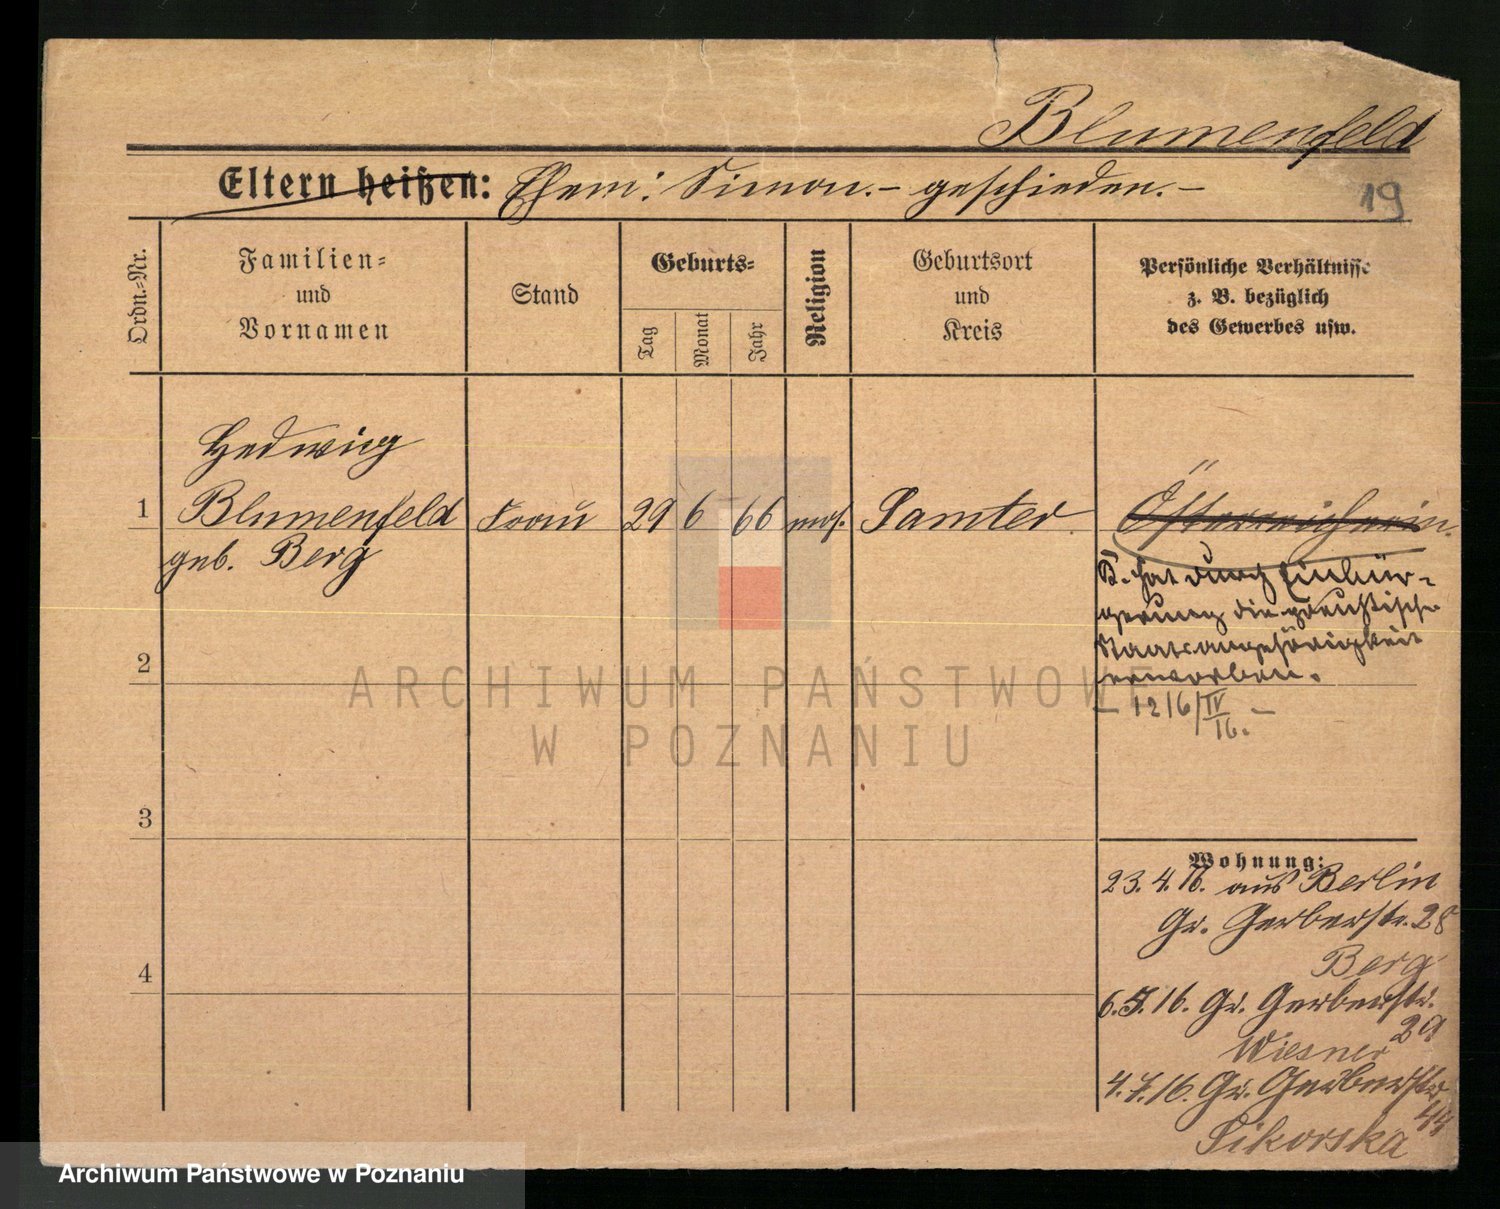 Blumenfeld
Eltern heißen: Ehem: Simon.– geschieden.–
19
Ordn.-Nr.
Familien-
und
Vornamen
Stand
Geburts-
Tag
Monat
Jahr
Religion
Geburtsort
und
Kreis
Persönliche Verhältnisse
z. B. bezüglich
des Gewerbes usw.
Hedwig
1 Blumenfeld Frau 29 6 66 mos. Samter Österreicherin.
geb. Berg
B. hat durch Einbür-
gerung die preußische
Staatsangehörigkeit
erworben.
– 1216/IV/16. –
2
ARCHIWUM PAŃSTWOWE
W POZNANIU
3
Wohnung:
23.4.16. aus Berlin
Gr. Gerberstr. 28
Berg
4
6.5.16. Gr. Gerberstr.
29
Wiesner
4.7.16. Gr. Gerberstr.
44
Sikorska
Archiwum Państwowe w Poznaniu